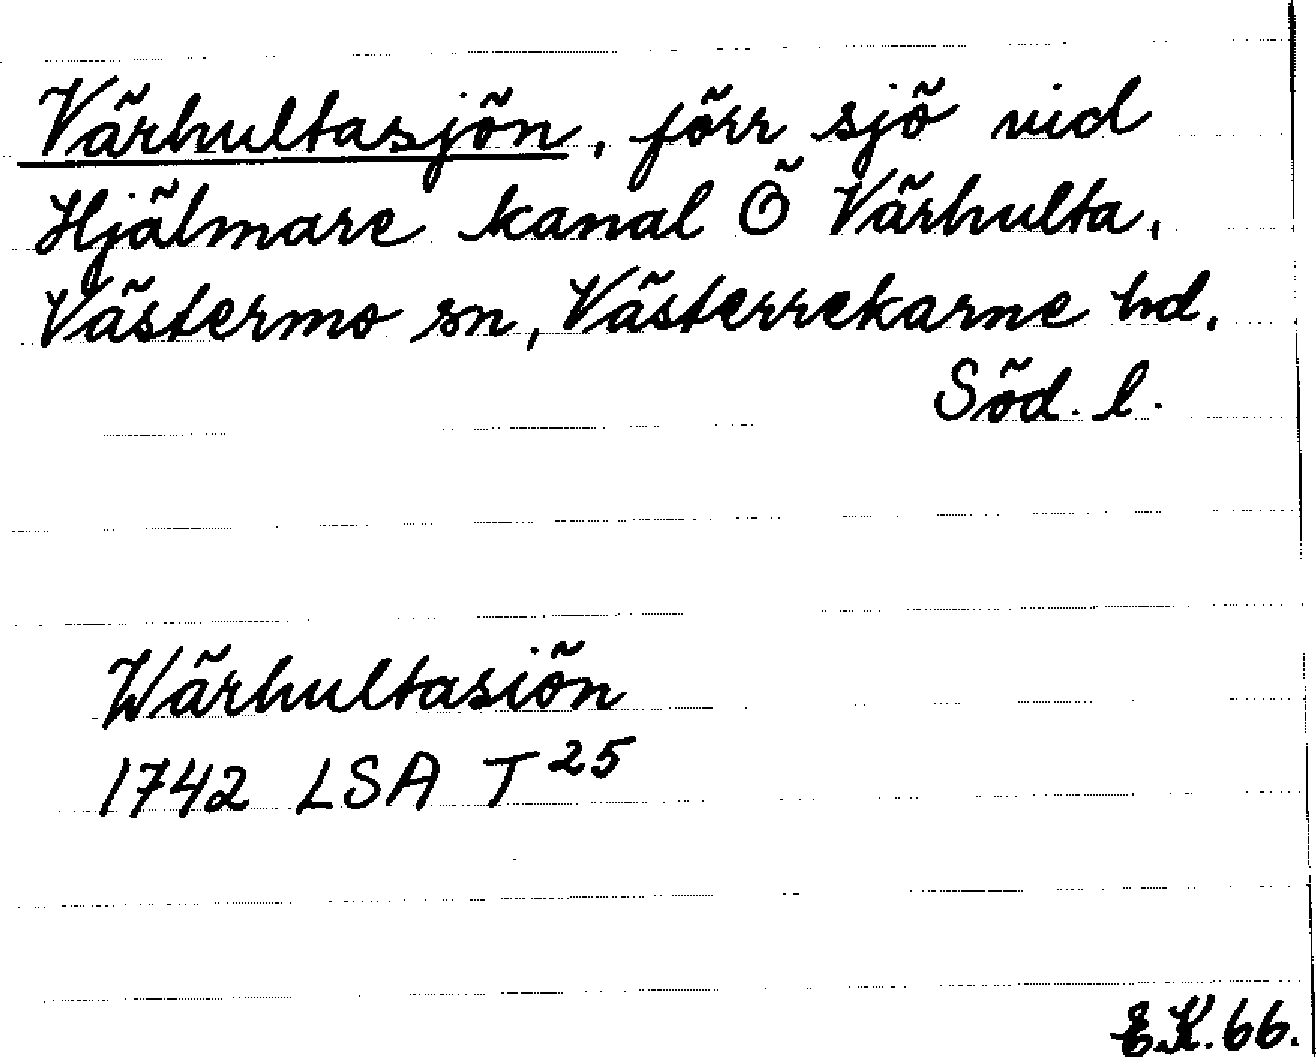 Värhultasjön, förr sjö vid
Hjälmare kanal Ö Värhulta,
Västermo sn, Västerrekarne hd,
Söd. l.
Wärhultasiön
1742 LSA T25
E.K. 66.